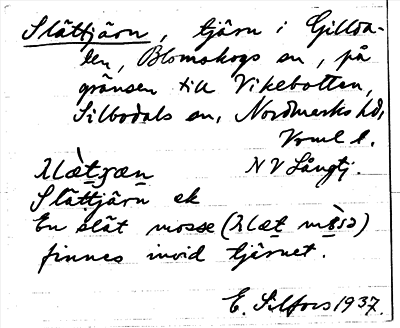 Slättjärn, tjärn i Gillda-
len, Blomskogs sn, på
gränsen till Vikebotten,
Silbodals sn, Nordmarks hd,
Vrml l.
NV Långtj.
Slättjärn ek
En slät mosse (
finnes invid tjärnet.
E. Silfors 1937.